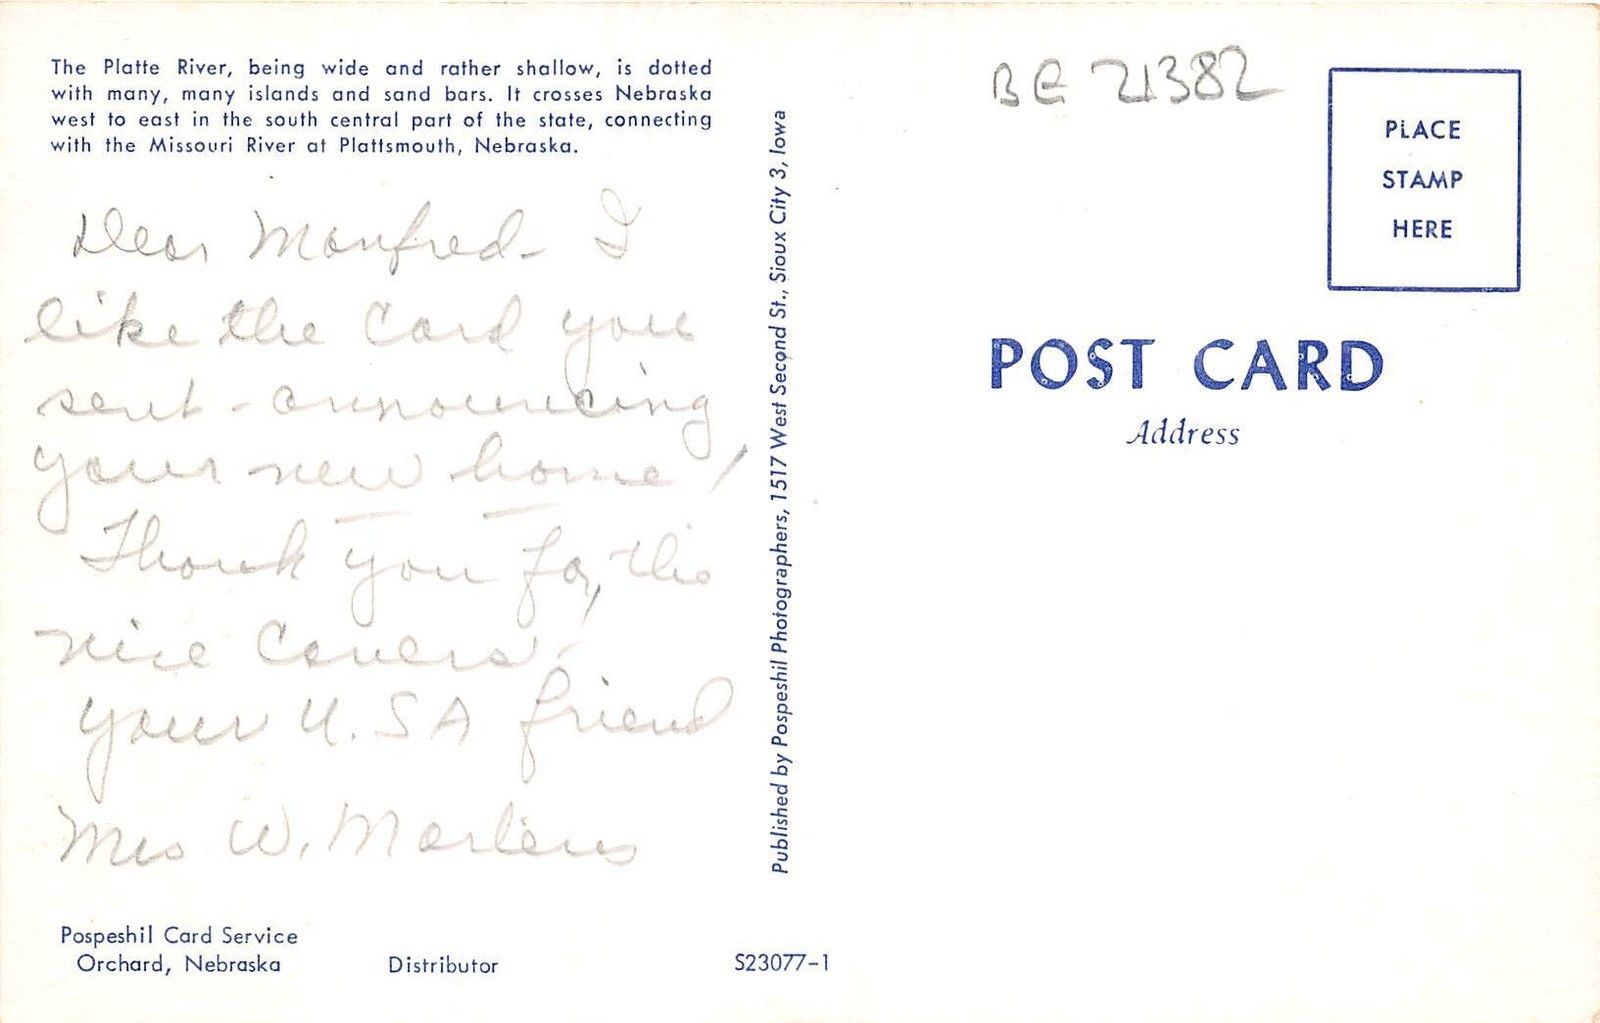 The Platte River, being wide and rather shallow, is dotted
with many, many islands and sand bars. It crosses Nebraska
west to east in the south central part of the state, connecting
with the Missouri River at Plattsmouth, Nebraska.
Dear Manfred - I
like the Card you
sent - announcing
your new home!
Thank you for, the
nice Covers.
Your U.SA friend
Mrs W. Martens
Pospeshil Card Service
Orchard, Nebraska
Distributor
S23077-1
Published by Pospeshil Photographers, 1517 West Second St., Sioux City 3, Iowa
BE 21382
PLACE
STAMP
HERE
POST CARD
Address